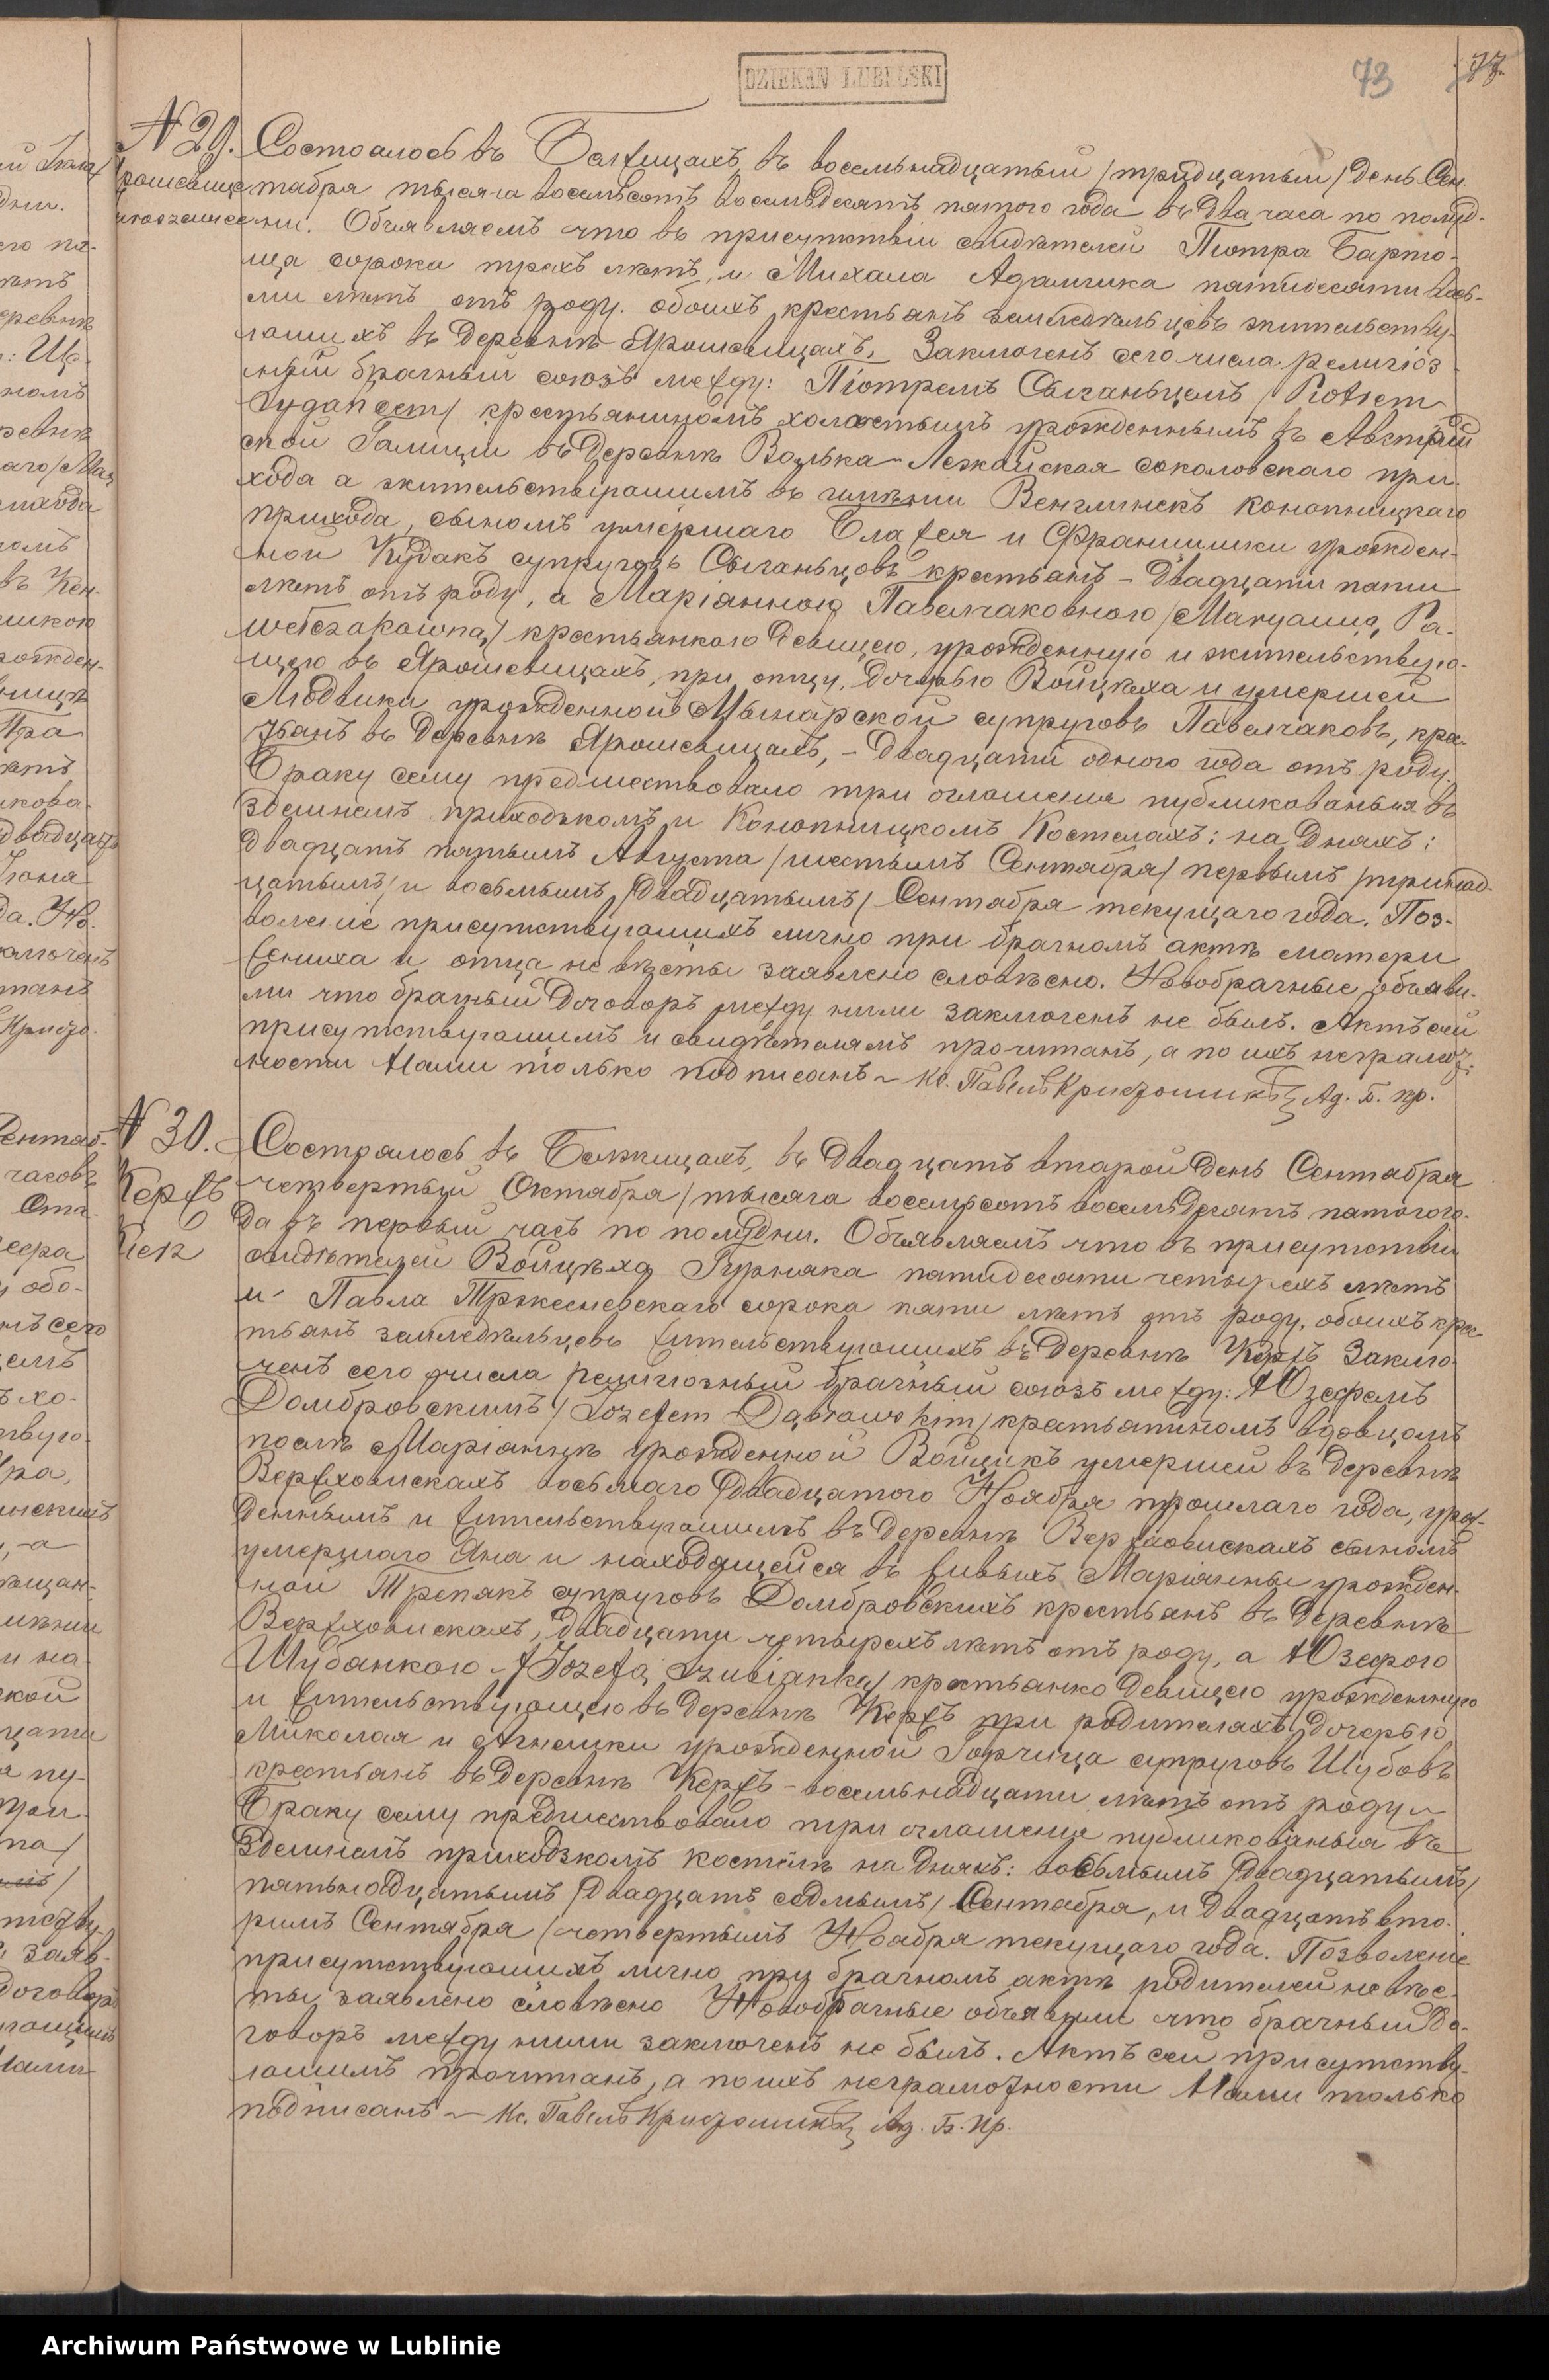 DZIEKAN LUBELSKI
73
77
N 29. Состоялось въ Белжицахъ, въ восемьнадцатый /тридцатый/ день Сен
тября тысяча восемьсотъ восемьдесятъ пятого года въ два часа по полуд-
ни. Объявляемъ что въ присутствіи свидѣтелей Піотра Барто-
сорока трехъ лѣтъ, и Михала Адамчика пятидесяти вось-
ми лѣтъ отъ роду. обоихъ крестьянъ земледѣльцевъ жительству-
ющихъ въ деревнѣ Ярошевицахъ, Заключенъ сего числа религіоз
ный брачный союзъ между: Піотремъ Сыганьцемъ /Piotrem
Cygancem/ крестьяниномъ холостымъ урожденнымъ въ Австрій
ской Галиціи въ деревнѣ Волька-Лежайская соколовскаго при
хода а жительствующимъ въ имѣніи Венглинекъ конопницкаго
прихода, сыномъ умершаго Блажея и Францишки урожден-
ной Кудакъ супруговъ Сыганьцовъ крестьянъ - двадцати пяти
лѣтъ отъ роду, а Маріанною Павелчаковною /Maryanną Pa-
wełczakowną/ крестьянкою девицею, урожденную и жительствую-
щею въ Ярошевицахъ, при отцу, дочерью Войцѣха и умершей
Людвики урожденной Мынарской супруговъ Павелчаковъ, крес-
тьянъ въ деревнѣ Ярошевицахъ, - двадцати одного года отъ роду.
Браку сему предшествовало три оглашенія публикованыя въ
здешнемъ приходскомъ и Конопницкомъ Костелахъ: на дняхъ:
двадцатъ пятымъ Августа /шестымъ Сентября/ первымъ /тринад-
цатымъ/ и восьмымъ /двадцатымъ/ Сентября текущаго года. Поз-
воленіе присутствующихъ лично при брачномъ актѣ матери
жениха и отца невѣсты заявлено словѣсно. Новобрачные объяви-
ли что брачный договоръ между ними заключенъ не былъ. Актъ сей
присутствующимъ и свидѣтелямъ прочитанъ, а по ихъ неграмот-
ности Нами только подписанъ ~ Кс. Павелъ Ад. Б. пр.
N 30. Состоялось въ Белжицахъ, въ двадцатъ второй день Сентября
Кержъ четвертый Октября /тысяча восемьсотъ восемьдесятъ пятого го-
да въ первый часъ по полудни. Объявляемъ что въ присутствіи
свидѣтелей Войцѣха Гурняка пятидесяти четырехъ лѣтъ
и Павла сорока пяти лѣтъ отъ роду, обоихъ крес-
тьянъ земледѣльцевъ жительствующихъ въ деревнѣ Кержъ Заклю-
ченъ сего числа религіозный брачный союзъ между: Юзефемъ
Домбровскимъ /Józefem Dąbrowskim/ крестьяниномъ вдовцомъ
послѣ Маріаннѣ урожденной Войцикъ умершей въ деревнѣ
Вержховискахъ восьмаго /двадцатого Ноября прошлаго года, урож-
деннымъ и жительствующимъ въ деревнѣ Вержховискахъ сыномъ
умершаго Яна и находящейся въ живыхъ Маріанны урожден-
ной Трепякъ супруговъ Домбровскихъ крестьянъ въ деревнѣ
Вержховискахъ, двадцати четырехъ лѣтъ отъ роду, а Юзефою
Шубанкою /Józefą Szubianką/ крестьянко девицею урожденную
и жительствующею въ деревнѣ Кержъ при родителяхъ дочерью
Миколая и Агнешки урожденной Горчица супруговъ Шубовъ
крестьянъ въ деревнѣ Кержъ - восемьнадцати лѣтъ отъ роду ~
Браку сему предшествовало три оглашенія публикованыя въ
здешнемъ приходскомъ костелѣ на дняхъ: восьмымъ /двадцатымъ/
пятьнодцатымъ /двадцатъ седмымъ/ Сентября, и двадцатъ вто-
рымъ Сентября /четвертымъ Ноября текущаго года. Позволеніе
присутствующихъ лично при брачномъ актѣ родителей невѣс-
ты заявлено словѣсно Новобрачные объявили что брачный до-
говоръ между ними заключенъ не былъ. Актъ сей присутству-
ющимъ прочитанъ, а по ихъ неграмотности Нами только
подписанъ ~ Кс. Павелъ Ад. Б. пр.
Archiwum Państwowe w Lublinie